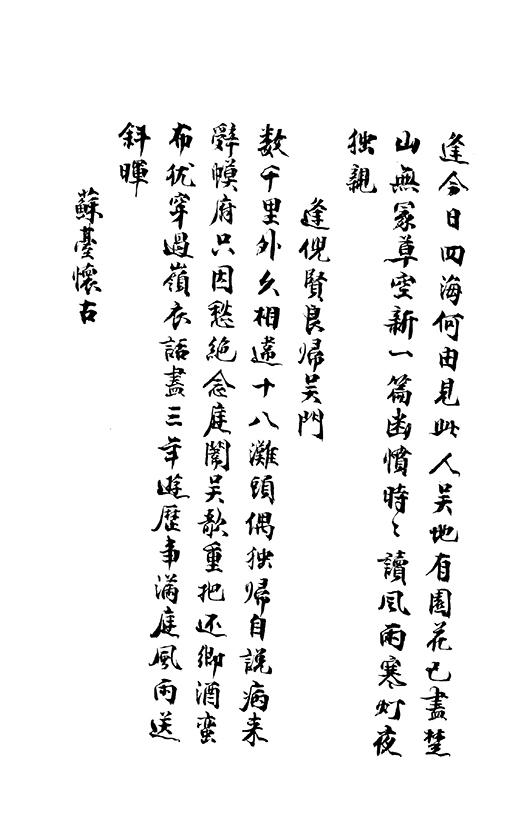 逢今日四海何由見此人吴地有園花已盡楚
山無冢草空新一篇幽憤時〻讀風雨寒灯夜
独親
逢倪賢良歸吴門
数千里外久相違十八灘頭偶独歸自說病来
辭幙府只因愁絶念庭闈吴歌重把还鄉酒蛮
布犹穿過嶺衣話盡三年遊歷事滿庭風雨送
斜暉
蘇臺懷古